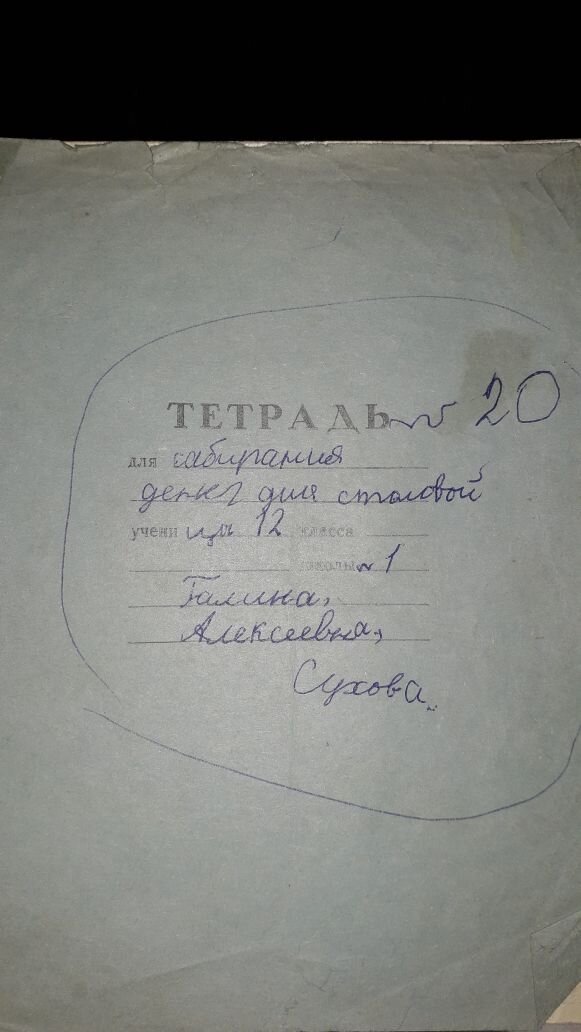 ТЕТРАДЬ № 20
для сабирания
денег для столовой
ученицы 12 класса
школы № 1
Галина,
Алексеевна,
Сухова..